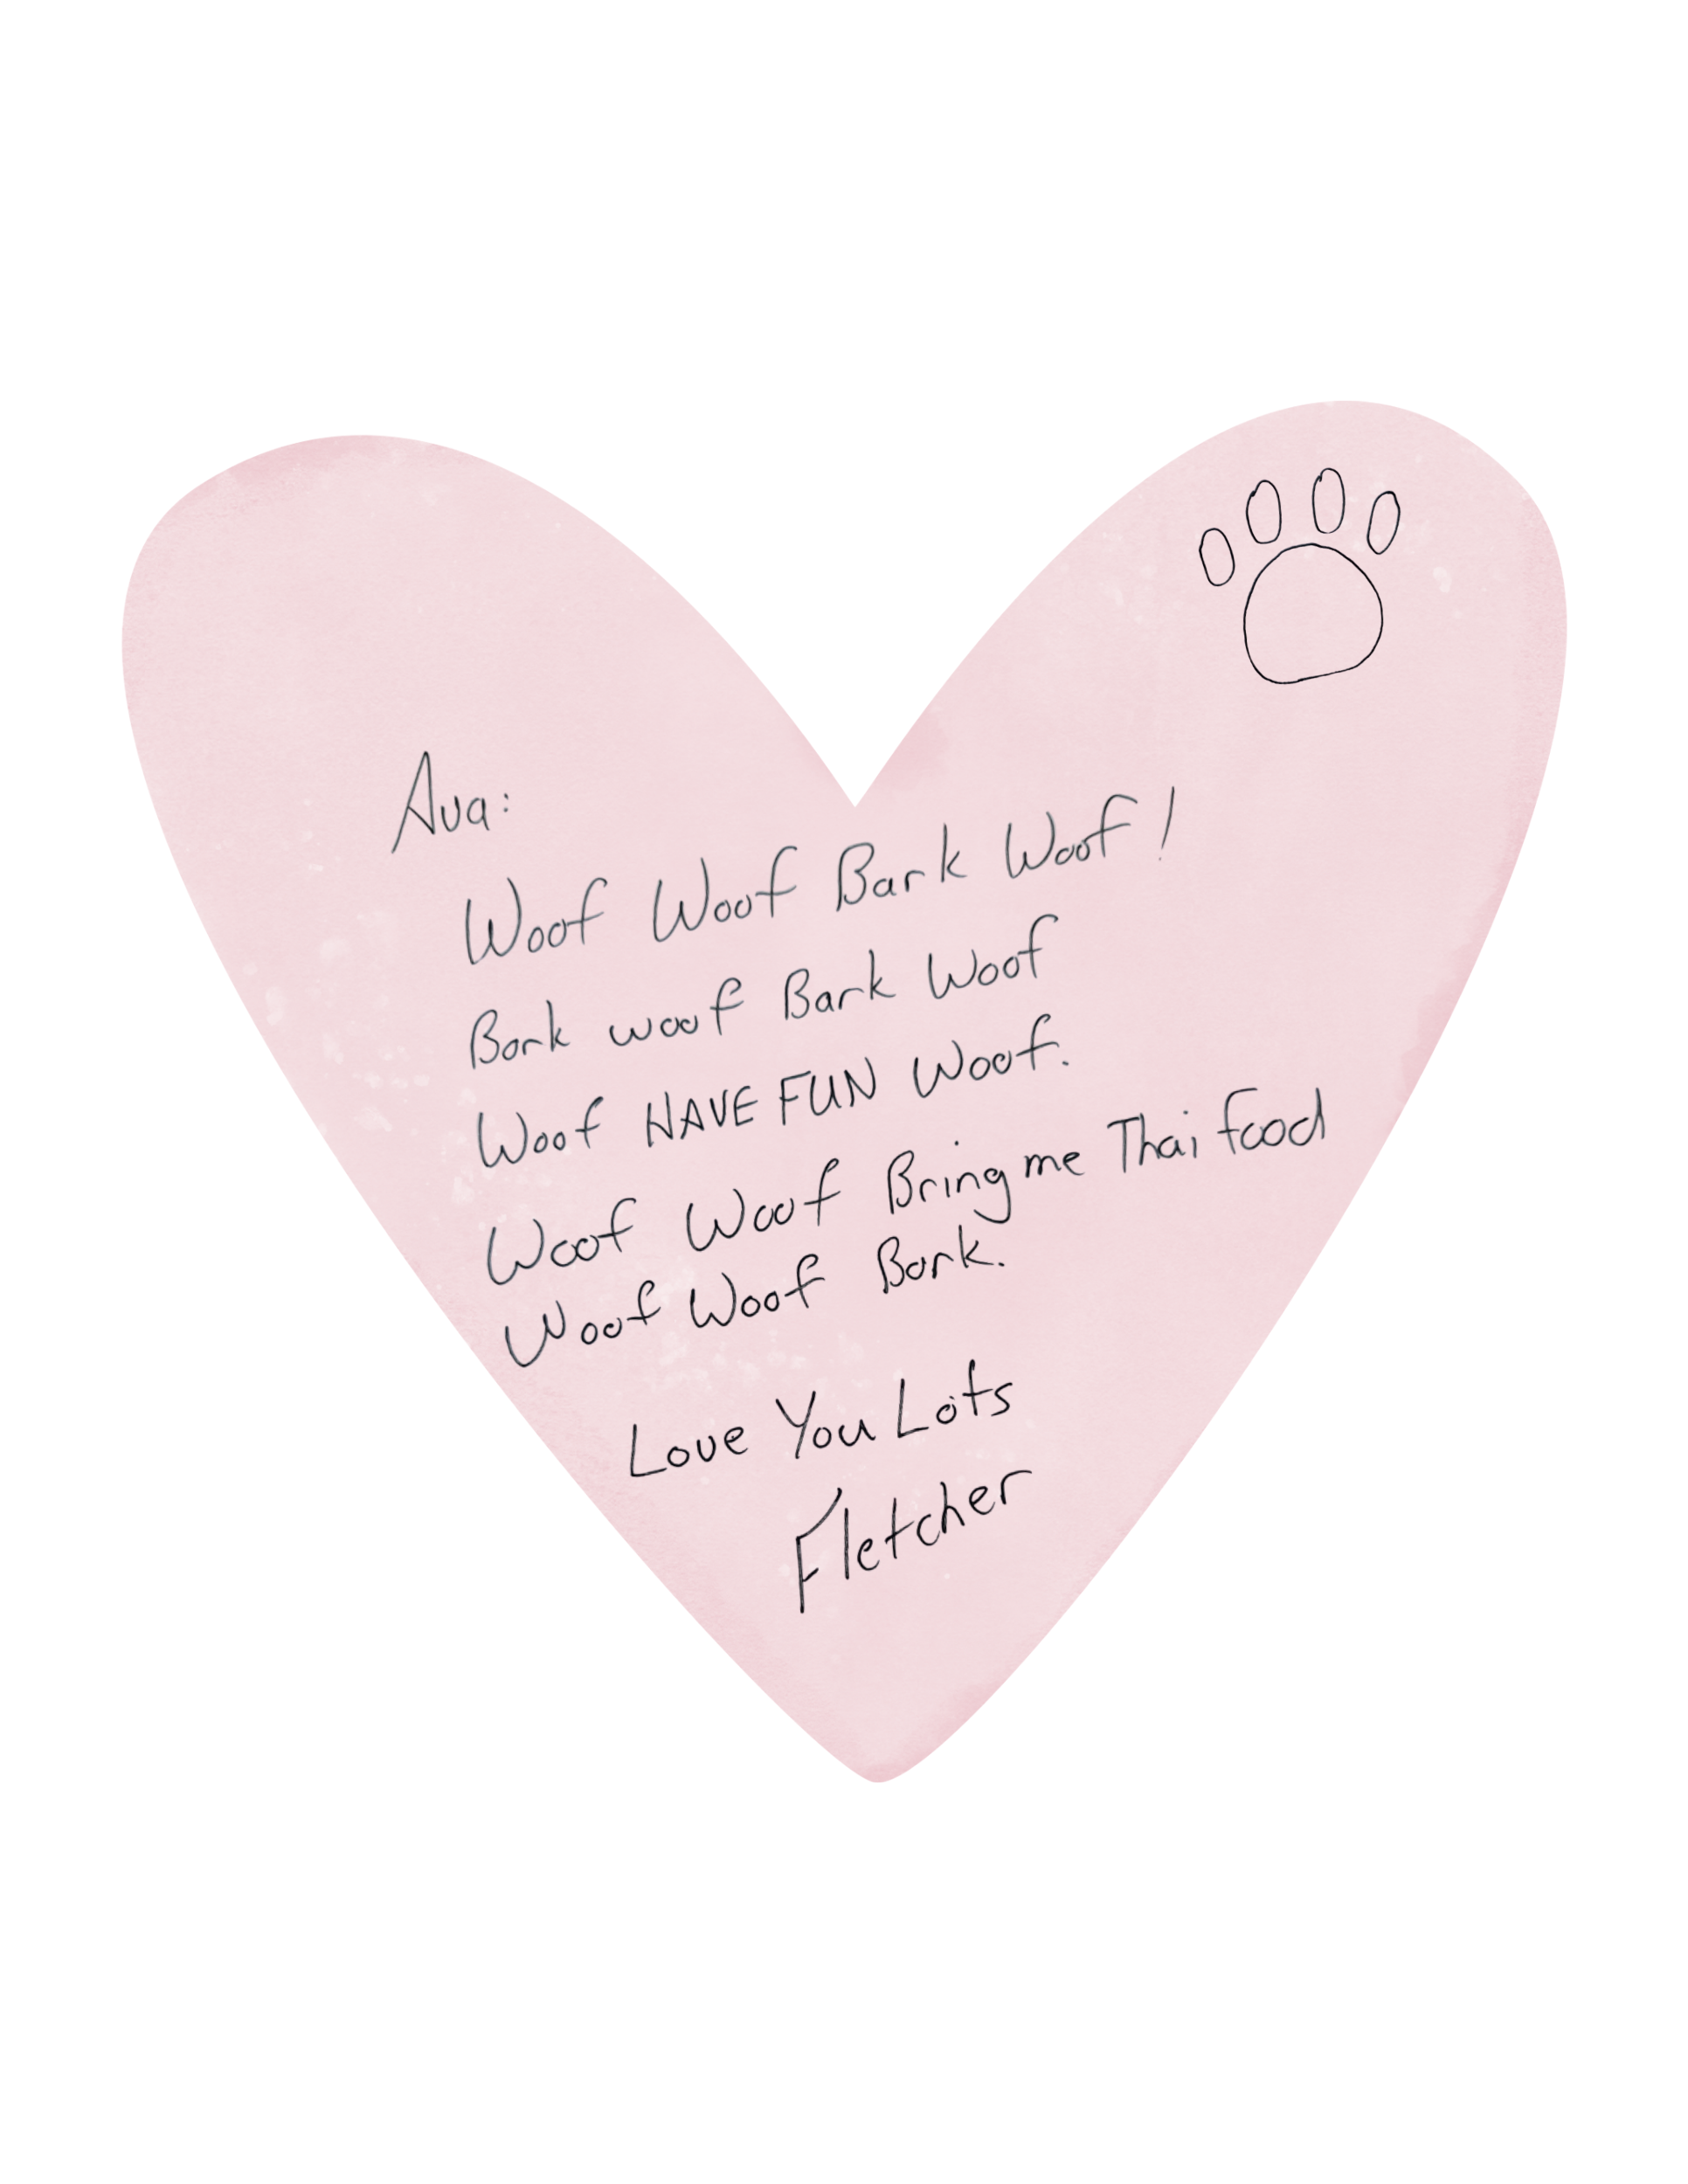 Ava:
Woof Woof Bark Woof!
Bark woof Bark Woof
Woof HAVE FUN Woof.
Woof Woof Bring me Thai food
Woof Woof Bark.
Love You Lots
Fletcher